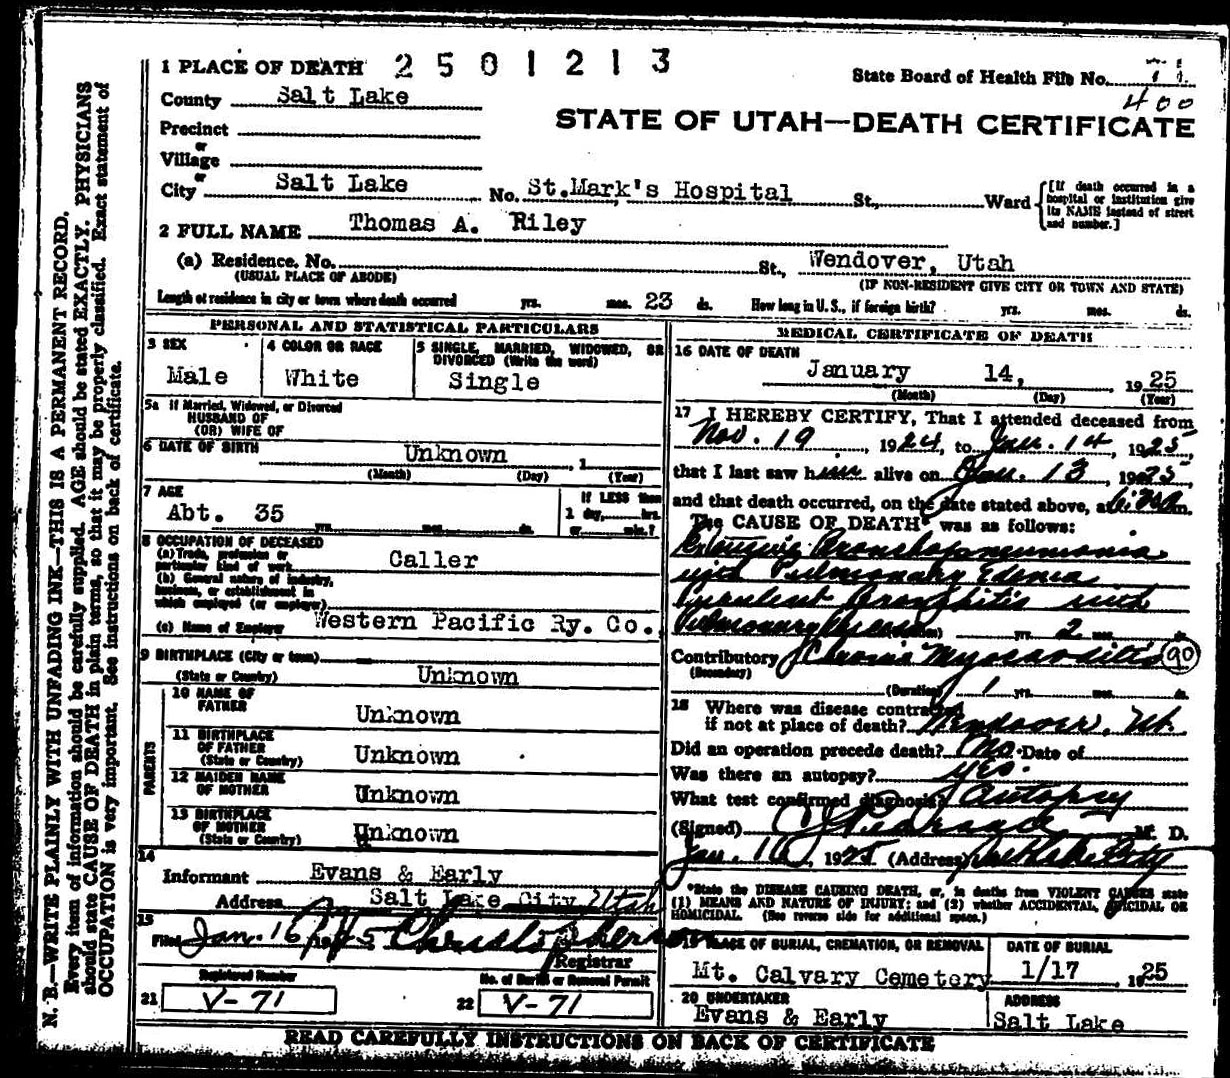 1 PLACE OF DEATH 2501213
State Board of Health File No. 71
400
County Salt Lake
STATE OF UTAH—DEATH CERTIFICATE
Precinct
or
Village
or
City Salt Lake No. St.Mark's Hospital St., Ward [If death occurred in a hospital or institution give its NAME instead of street and number.]
2 FULL NAME Thomas A. Riley
(a) Residence. No. St., Wendover, Utah
(USUAL PLACE OF ABODE) (IF NON-RESIDENT GIVE CITY OR TOWN AND STATE)
Length of residence in city or town where death occurred yrs. mos. 23 ds. How long in U. S., if foreign birth? yrs. mos. ds.
PERSONAL AND STATISTICAL PARTICULARS
3 SEX
Male
4 COLOR OR RACE
White
5 SINGLE, MARRIED, WIDOWED, OR
DIVORCED (Write the word)
Single
5a If Married, Widowed, or Divorced
HUSBAND OF
(OR) WIFE OF
6 DATE OF BIRTH Unknown , 1
(Month) (Day) (Year)
7 AGE
Abt. 35
yrs. mos. ds.
If LESS than
1 day, hrs.
or min.?
8 OCCUPATION OF DECEASED
(a) Trade, profession or
particular kind of work Caller
(b) General nature of industry,
business, or establishment in
which employed (or employer)
(c) Name of Employer Western Pacific Ry. Co.
9 BIRTHPLACE (City or town)
(State or Country) Unknown
PARENTS
10 NAME OF
FATHER Unknown
11 BIRTHPLACE
OF FATHER
(State or Country) Unknown
12 MAIDEN NAME
OF MOTHER Unknown
13 BIRTHPLACE
OF MOTHER
(State or Country) Unknown
14
Informant Evans & Early
Address Salt Lake City Utah
15
Filed Jan. 16
Registrar
Registered Number
21 V-71
No. of Burial or Removal Permit
22 V-71
MEDICAL CERTIFICATE OF DEATH
16 DATE OF DEATH
January 14, 1925
(Month) (Day) (Year)
17 I HEREBY CERTIFY, That I attended deceased from
Nov. 19 1924, to Jan. 14, 1925,
that I last saw him alive on Jan. 13 1925,
and that death occurred, on the date stated above, at m.
The CAUSE OF DEATH* was as follows:
Bronchopneumonia
with Pulmonary Edema
Bronchitis with
Pulmonary (Duration) yrs. 2 mos. ds.
Contributory Chronic Myocarditis 90
(Secondary)
(Duration) 1 yrs. mos. ds.
18 Where was disease contracted
if not at place of death? Wendover, Ut.
Did an operation precede death? No Date of
Was there an autopsy? yes.
What test confirmed diagnosis? Autopsy
(Signed) M. D.
Jan. 16, 1925 (Address) Salt Lake City
*State the DISEASE CAUSING DEATH, or, in deaths from VIOLENT CAUSES state
(1) MEANS AND NATURE OF INJURY; and (2) whether ACCIDENTAL, SUICIDAL OR
HOMICIDAL. (See reverse side for additional space.)
19 PLACE OF BURIAL, CREMATION, OR REMOVAL
Mt. Calvary Cemetery
DATE OF BURIAL
1/17 , 1925
20 UNDERTAKER
Evans & Early
ADDRESS
Salt Lake
READ CAREFULLY INSTRUCTIONS ON BACK OF CERTIFICATE
N. B.—WRITE PLAINLY WITH UNFADING INK—THIS IS A PERMANENT RECORD.
Every item of information should be carefully supplied. AGE should be stated EXACTLY. PHYSICIANS
should state CAUSE OF DEATH in plain terms, so that it may be properly classified. Exact statement of
OCCUPATION is very important. See instructions on back of certificate.